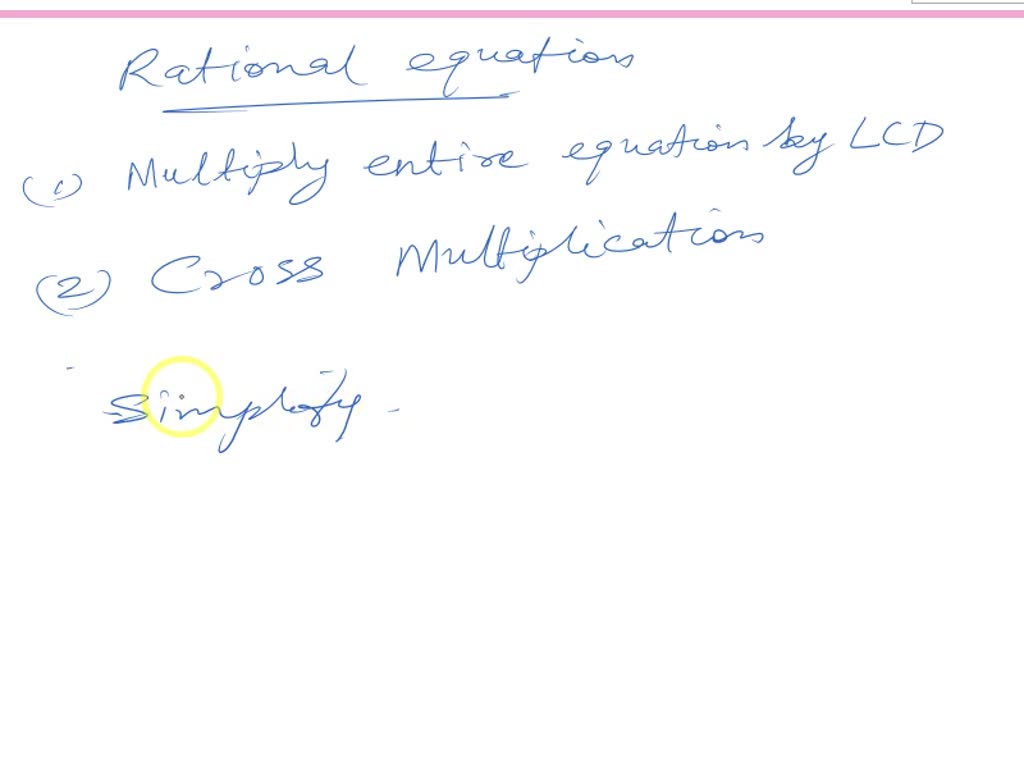 Rational equation
(1) Multiply entire equation by LCD
(2) Cross Multiplication
Simplify.